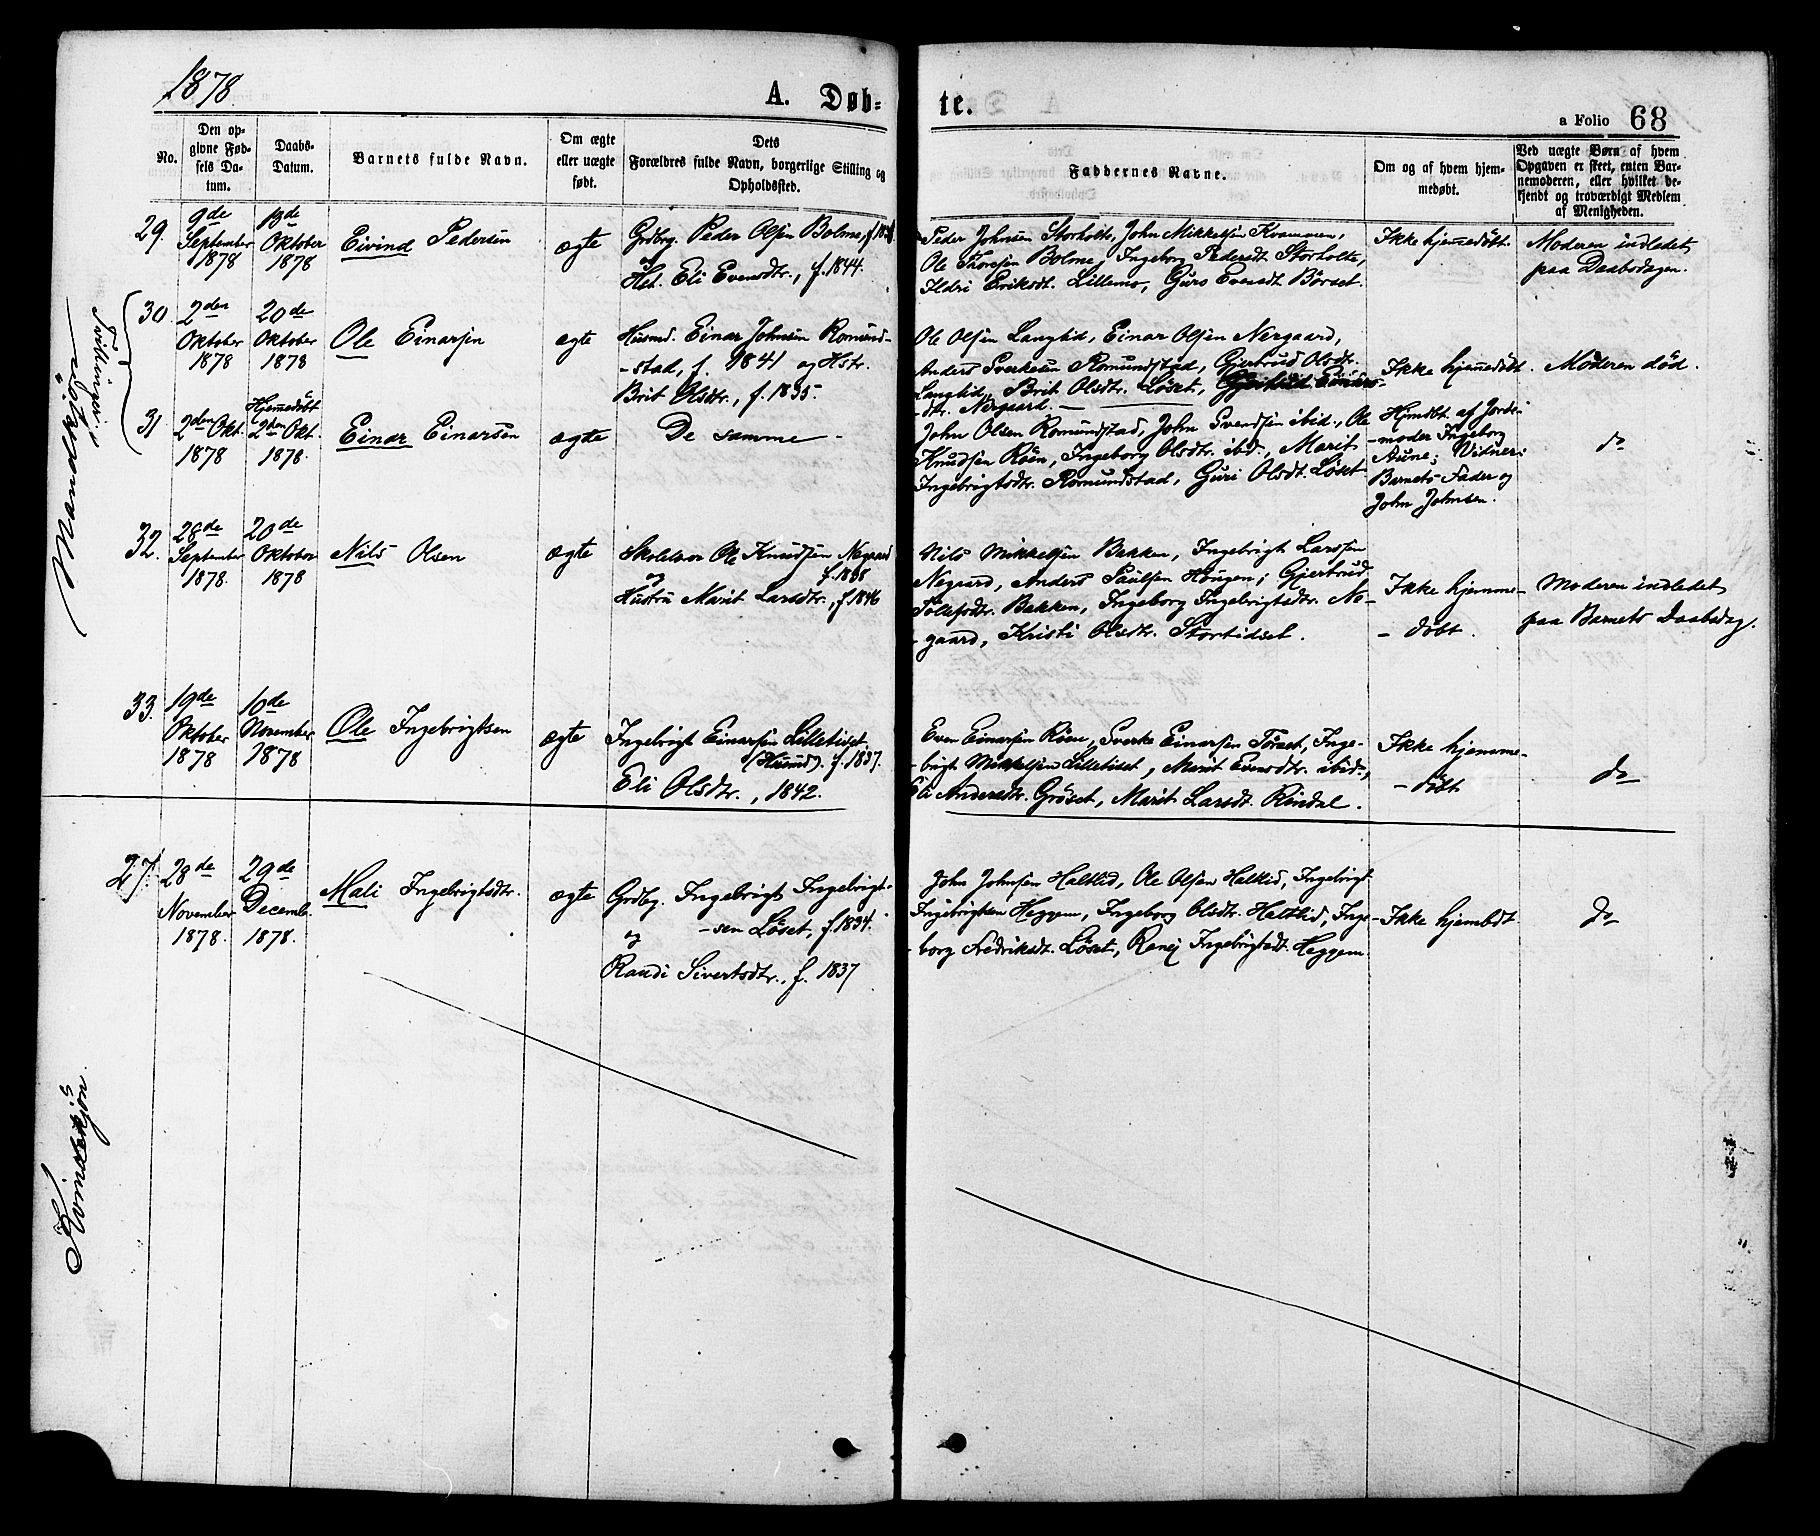 1878
A. Døb=
te.
a Folio 68
No.
Den op-
givne Fød-
sels Da-
tum.
Daabs-
Datum.
Barnets fulde Navn.
Om ægte
eller uægte
født.
Dets
Forældres fulde Navn, borgerlige Stilling og
Opholdssted.
Faddernes Navne.
Om og af hvem hjem-
medøbt.
Ved uægte Børn af hvem
Opgaven er skeet, enten Bar-
nemoderen, eller hvilket be-
kjendt og troværdigt Medlem
af Menigheden.
Mandkjön
Tvillinger
29.
9de
September
1878
Oktober
1878
Eivind Pedersen
ægte
Grdbrg. Peder Olsen Bolme,
og
Hst. Eli Evensdtr., f. 1844.
Peder Johnsen Storholt, John Mikkelsen Kvammen,
Ole Thoresen Bolme, Ingeborg Pedersdt. Storholt,
Ildri Eriksdt. Lillemo, Guro Evensdt Börset.
Ikke hjemmedöbt.
Moderen indledet
paa Daabsdagen.
30.
2den
Oktober
1878
20de
Oktober
1878
Ole Einarsen
ægte
Husmd. Einar Johnsen Romund-
-stad, f. 1841 og Hstr.
Brit Olsdtr., f. 1835.
Ole Olsen Langlid, Einar Olsen Nergaard,
Anders Sverkesen Romundstad, Gjertrud Olsdtr.
Langlid, Brit Olsdtr. Löset,
-dtr. Nergaard.
Ikke hjemmedöbt.
Moderen död.
31
2den Okt.
1878
Hjemmedöbt
2den Okt.
1878.
Einar Einarsen
ægte
De samme
John Olsen Romundstad, John Svendsen ibid., Ole
Knudsen Röen, Ingeborg Olsdtr. ibid., Marit
Ingebrigtsdtr. Romundstad, Guri Olsdt. Löset
Hjmdöbt. af Jorde-
-moder Ingeborg
Aune; Vitner:
Barnets Fader og
John Johnsen.
do
32.
28de
September
1878.
20de
Oktober
1878
Nils Olsen
ægte
Skolelær Ole Knudsen Negaard
f. 1838
og
Hustru Marit Larsdtr., f. 1846
Nils Mikkelsen Bakken, Ingebrigt Larssen
Negaard, Anders Paulsen Hougen; Gjertrud
Tolefsdtr. Bakken, Ingeborg Ingebrigtsdtr. Ne-
-gaard, Kristi Olsdtr. Stortidset.
Ikke hjemme-
-döbt.
Moderen indledet
paa Barnets Daabsdag.
33.
19de
Oktober
1878
10de
November
1878
Ole Ingebrigtsen
ægte
Ingebrigt Einarsen Lilletidset
(Husmd). f. 1837.
Eli Olsdtr., 1842.
Even Einarsen Röen, Sverke Einarsen Törset, Inge-
-brigt Mikkelsen Lilletidset, Marit Evensdtr. ibid.,
Eli Andersdtr. Gröset, Marit Larsdt. Rindal.
Ikke hjemme-
-döbt
do
Kvindekjön.
27.
28de
November
1878.
29de
Decemb.
1878.
Mali Ingebrigtsdtr.
ægte
Grdbg. Ingebrigt Ingebrigt-
-sen Löset, f. 1834.
og
Randi Sivertsdtr., f. 1837
John Johnsen Haltlid, Ole Olsen Haltlid, Ingebrigt
Ingebrigtsen Heggem, Ingeborg Olsdtr. Haltlid, Inge-
-borg Fredriksdt. Löset, Ranej Ingebrigtsdt. Heggem
Ikke hjembdt
do